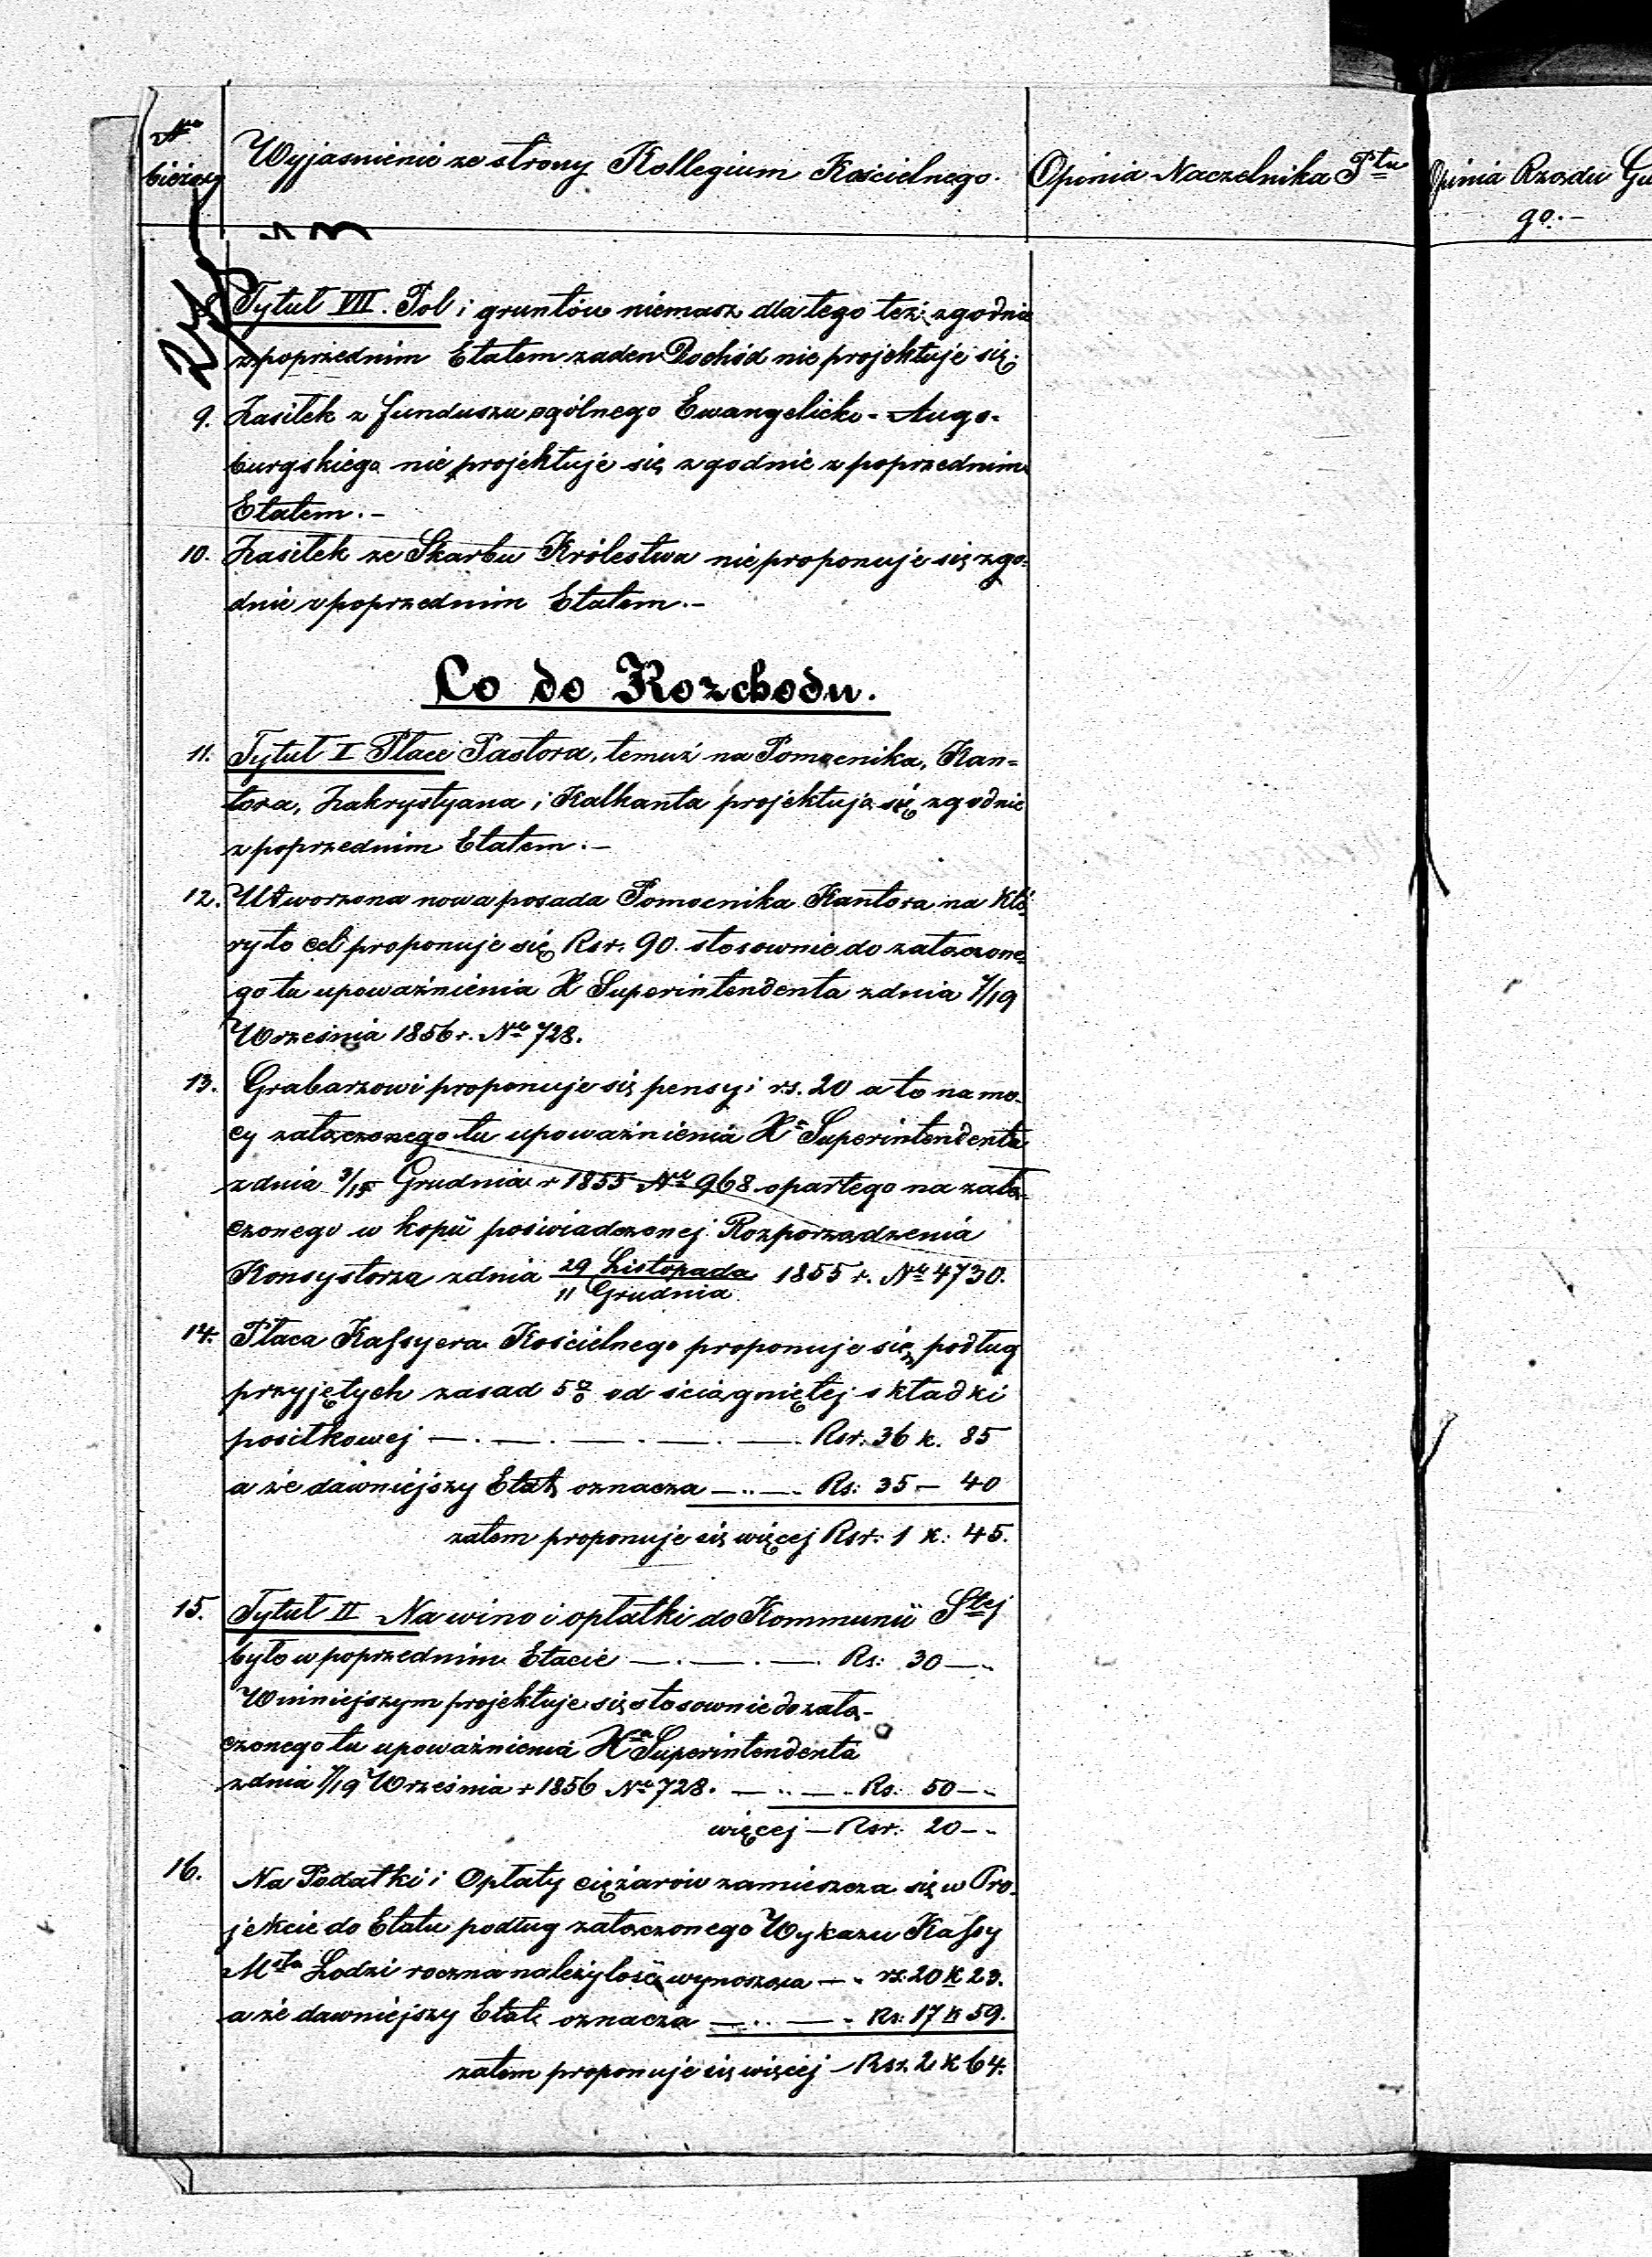 Nro
bieżący
Wyjasnienie ze strony Kollegium Kościelnego.
Opinia Naczelnika Ptu
Opinia Rządu Gu
go.-
8. Tytuł VII. Pol i gruntów niemasz dla tego też zgodnie
z poprzednim Etatem żaden Dochód nie projektuje się.
9. Zasiłek z funduszu ogólnego Ewangelicko-Augs-
burgskiego nie projektuje się zgodnie z poprzednim
Etatem.-
10. Zasiłek ze Skarbu Królestwa nie proponuje się zgo-
dnie z poprzednim Etatem.-
Co do Rozchodu.
11. Tytuł I Płace Pastora, temuż na Pomocnika, Kan=
tora, Zakrystyana i Kalkanta projektują się zgodnie
z poprzednim Etatem.-
12. Utworzona nowa posada Pomocnika Kantora na któ
ry to cel proponuje się Rsr. 90. stosownie do załączone-
go tu upoważnienia X Superintendenta z dnia 7/19
Września 1856 r. No 728.
13. Grabarzowi proponuje się pensyi rs. 20 a to na mo-
cy załączonego tu upoważnienia Xa Superintendenta
z dnia 3/15 Grudnia r 1855 No 968 opartego na załą-
czonego w kopii poświadczonej Rozporządzenia
Konsystorza z dnia 29 Listopada / 11 Grudnia 1855 r. No 4730.
14. Płaca Kassyera Kościelnego proponuje się podług
przyjętych zasad 5% od ściągniętej składki
posiłkowej — . — . — . — . — Rsr: 36 k. 85
a że dawniejszy Etat oznacza — .. — . Rs: 35 — 40
zatem proponuje się więcej Rsr: 1 k: 45.
15. Tytuł II Na wino i opłatki do Kommunii Stej
było w poprzednim Etacie — . — . — . Rs: 30 — „
W niniejszym projektuje się stosownie do załą-
czonego tu upoważnienia Xa Superintendenta
z dnia 7/19 Września r 1856 No 728. — .. — . Rs: 50 — „
więcej — Rsr: 20 — „
16. Na Podatki i Opłaty ciężarów zamieszcza się w Pro-
jekcie do Etatu podług załączonego Wykazu Kassy
Msta Łodzi roczna należytość wynosząca — „ rs: 20 k 23.
a że dawniejszy Etat oznacza — .. — . Rs: 17 k 59.
zatem proponuje się więcej — Rsr. 2 k 64.